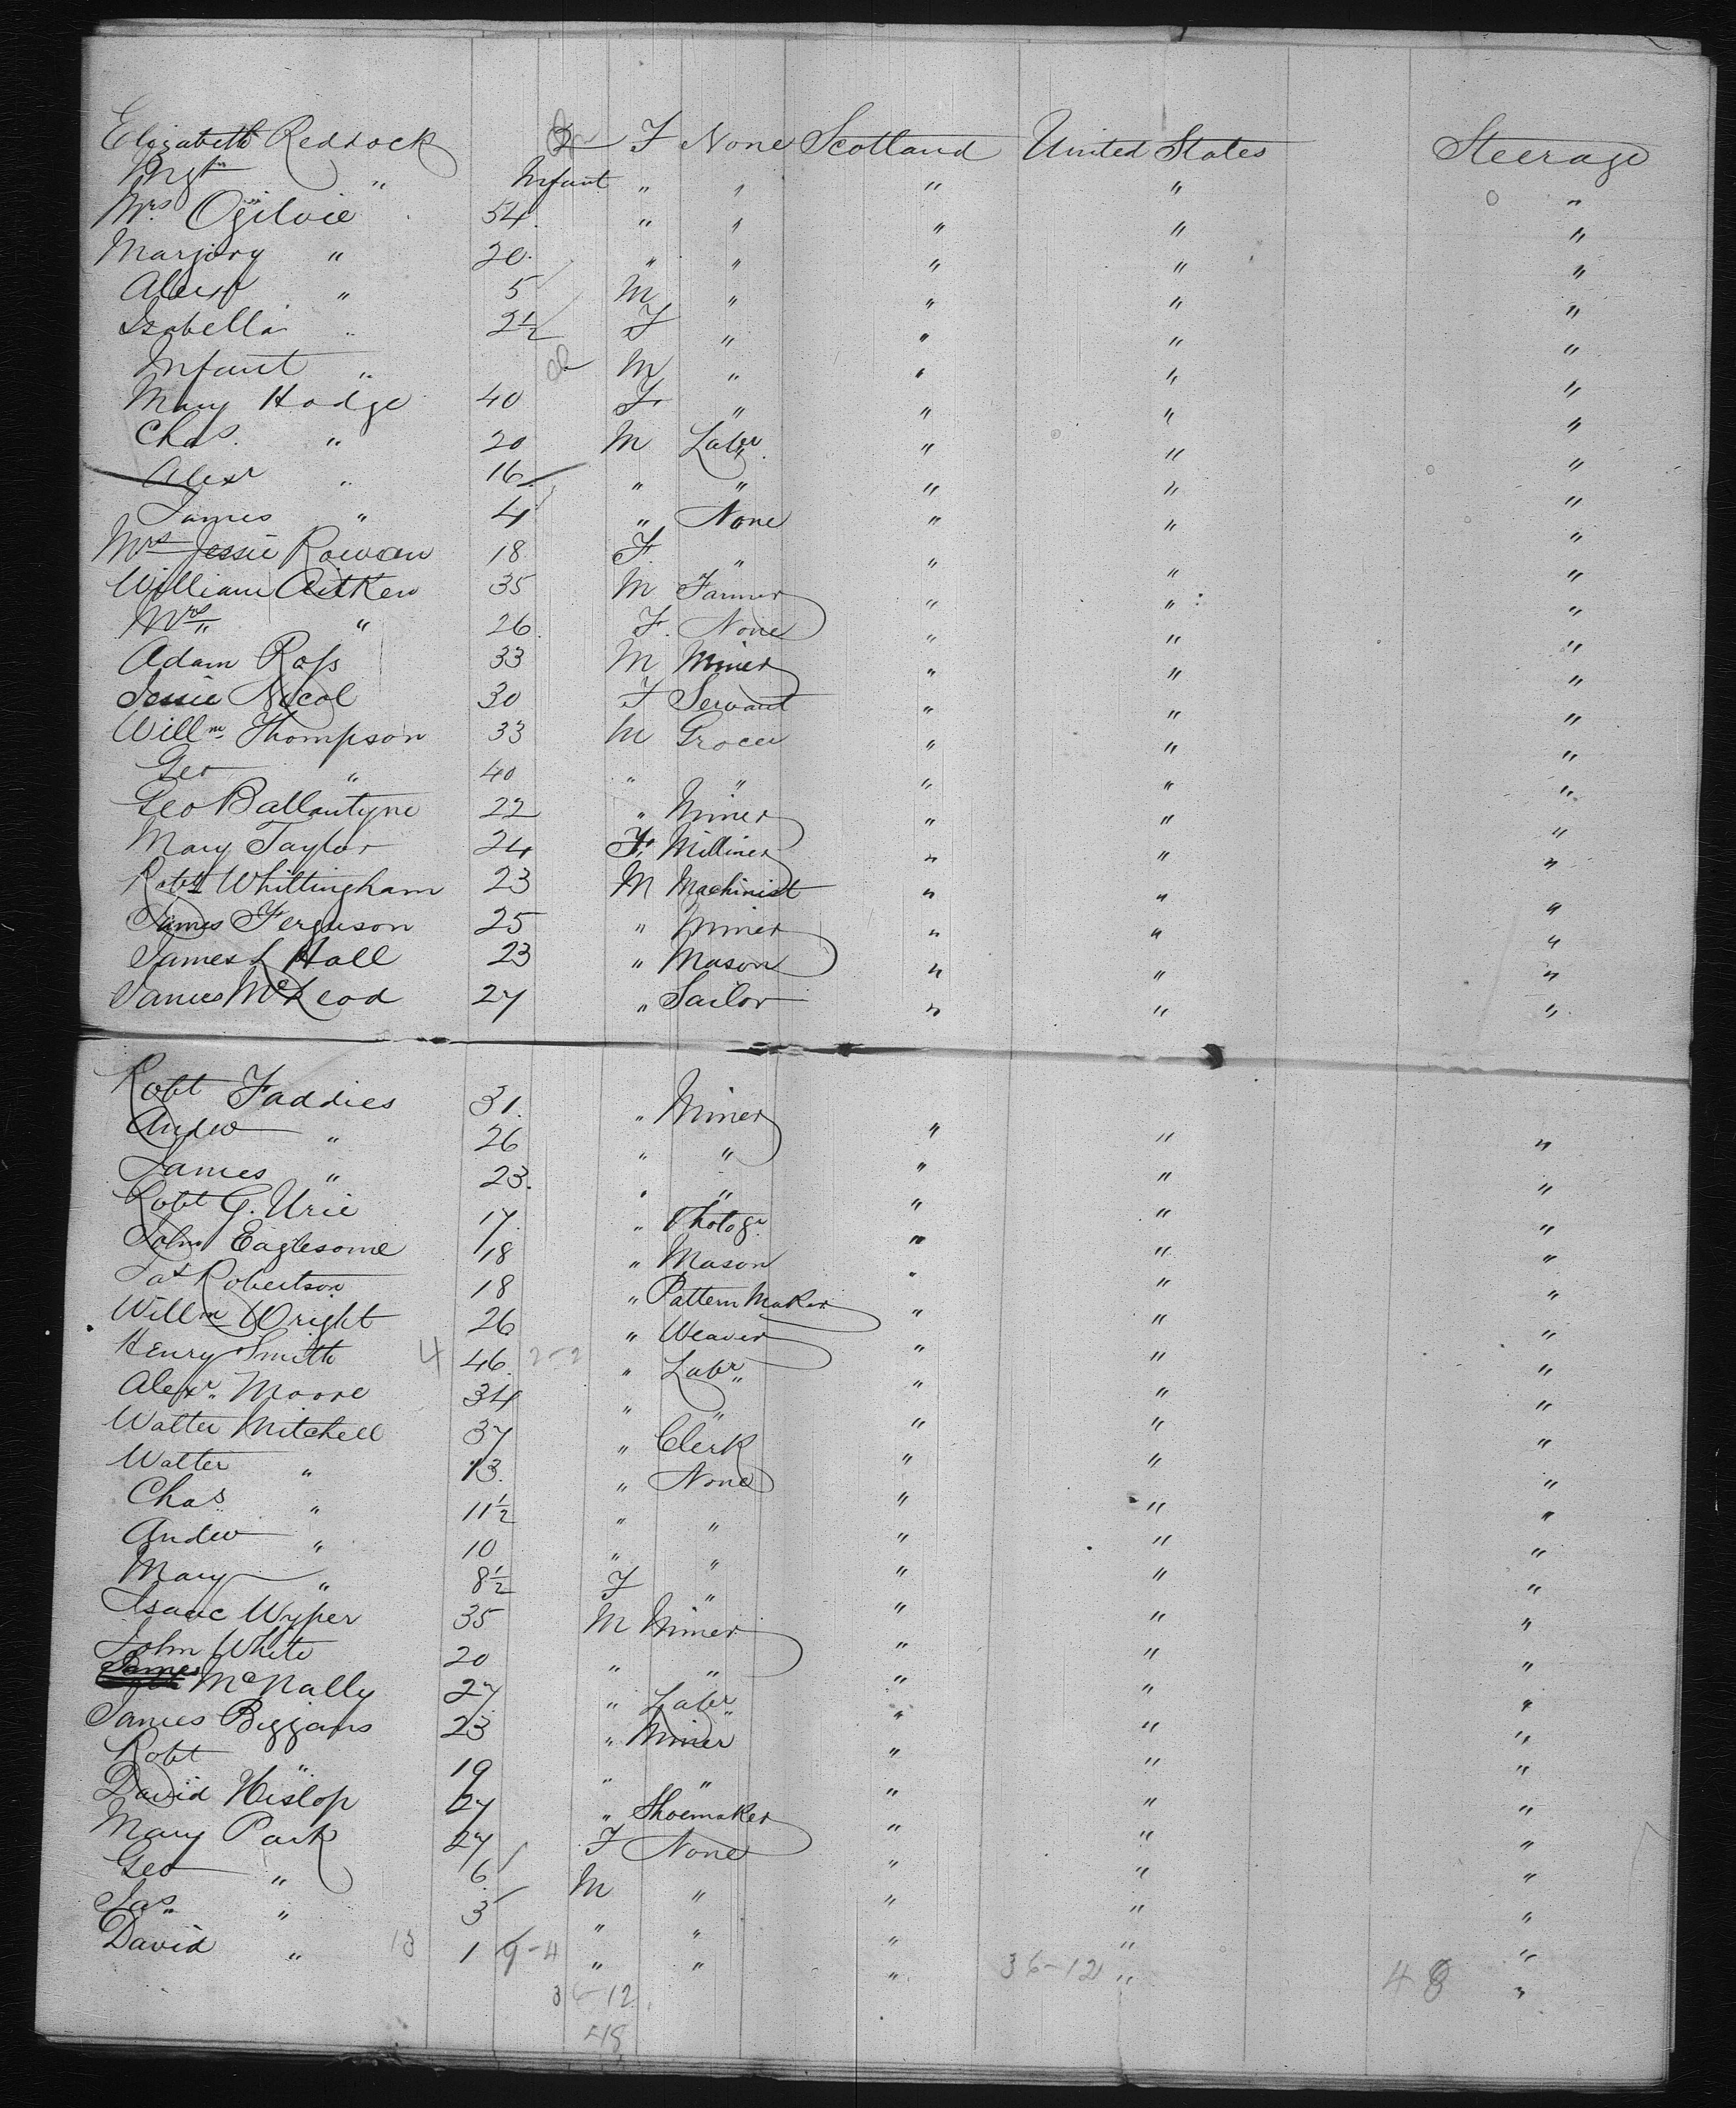 Elizabeth Reddock 2 F None Scotland United States Steerage
Mgt " Infant " " " " "
Mrs Ogilvie 54 " " " " "
Marjory " 20 " " " " "
Alexr " 5 M " " " "
Isabella " 2½ F " " " "
Infant " M " " " "
Mary Hodge 40 F " " " "
Chas. " 20 M Labr " " "
Alexr " 16 " " " " "
James " 4 " None " " "
Mrs Jessie Rowan 18 F " " " "
William Aitken 35 M Farmer " " "
Mrs " 26 F. None " " "
Adam Ross 33 M Miner " " "
Jessie Nicol 30 F Servant " " "
Willm Thompson 33 M Grocer " " "
Geo " 40 " " " " "
Geo Ballantyne 22 " Miner " " "
Mary Taylor 24 F. Milliner " " "
Robt Whittingham 23 M Machinist " " "
James Ferguson 25 " Miner " " "
James L Hall 23 " Mason " " "
James McLeod 27 " Sailor " " "
Robt Faddies 31. " Miner " " "
Andw " 26 " " " " "
James " 23. " " " " "
Robt G. Urie 17. " Photogr " " "
John Eaglesome 18 " Mason " " "
Jas Robertson 18 " Pattern Maker " " "
Willm Wright 26 " Weaver " " "
Henry Smith 4 46 2-2 " Labr " " "
Alexr. Moore 34 " " " " "
Walter Mitchell 37 " Clerk " " "
Walter " 13. " None " " "
Chas " 11½ " " " " "
Andw " 10 " " " " "
Mary " 8½ F " " " "
Isaac Wyper 35 M Miner " " "
John White 20 " " " " "
James McNally 27 " Labr " " "
James Biggans 23 " Miner " " "
Robt " 19 " " " " "
David Hislop 27 " Shoemaker " " "
Mary Park 27 F None " " "
Geo " 6 M " " " "
Jas " 3 " " " " "
David " 13 1 9-4 " " " 36-12 " 48 "
36-12
48